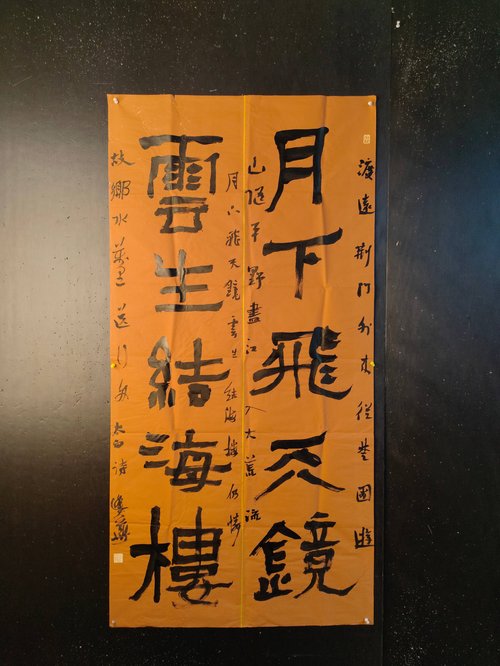 渡遠荆门外来從楚國遊
月下飛天鏡
山随平野盡江入大荒流
月下飛天鏡雲生結海樓仍憐
雲生結海樓
故鄉水萬里送行舟 太白詩